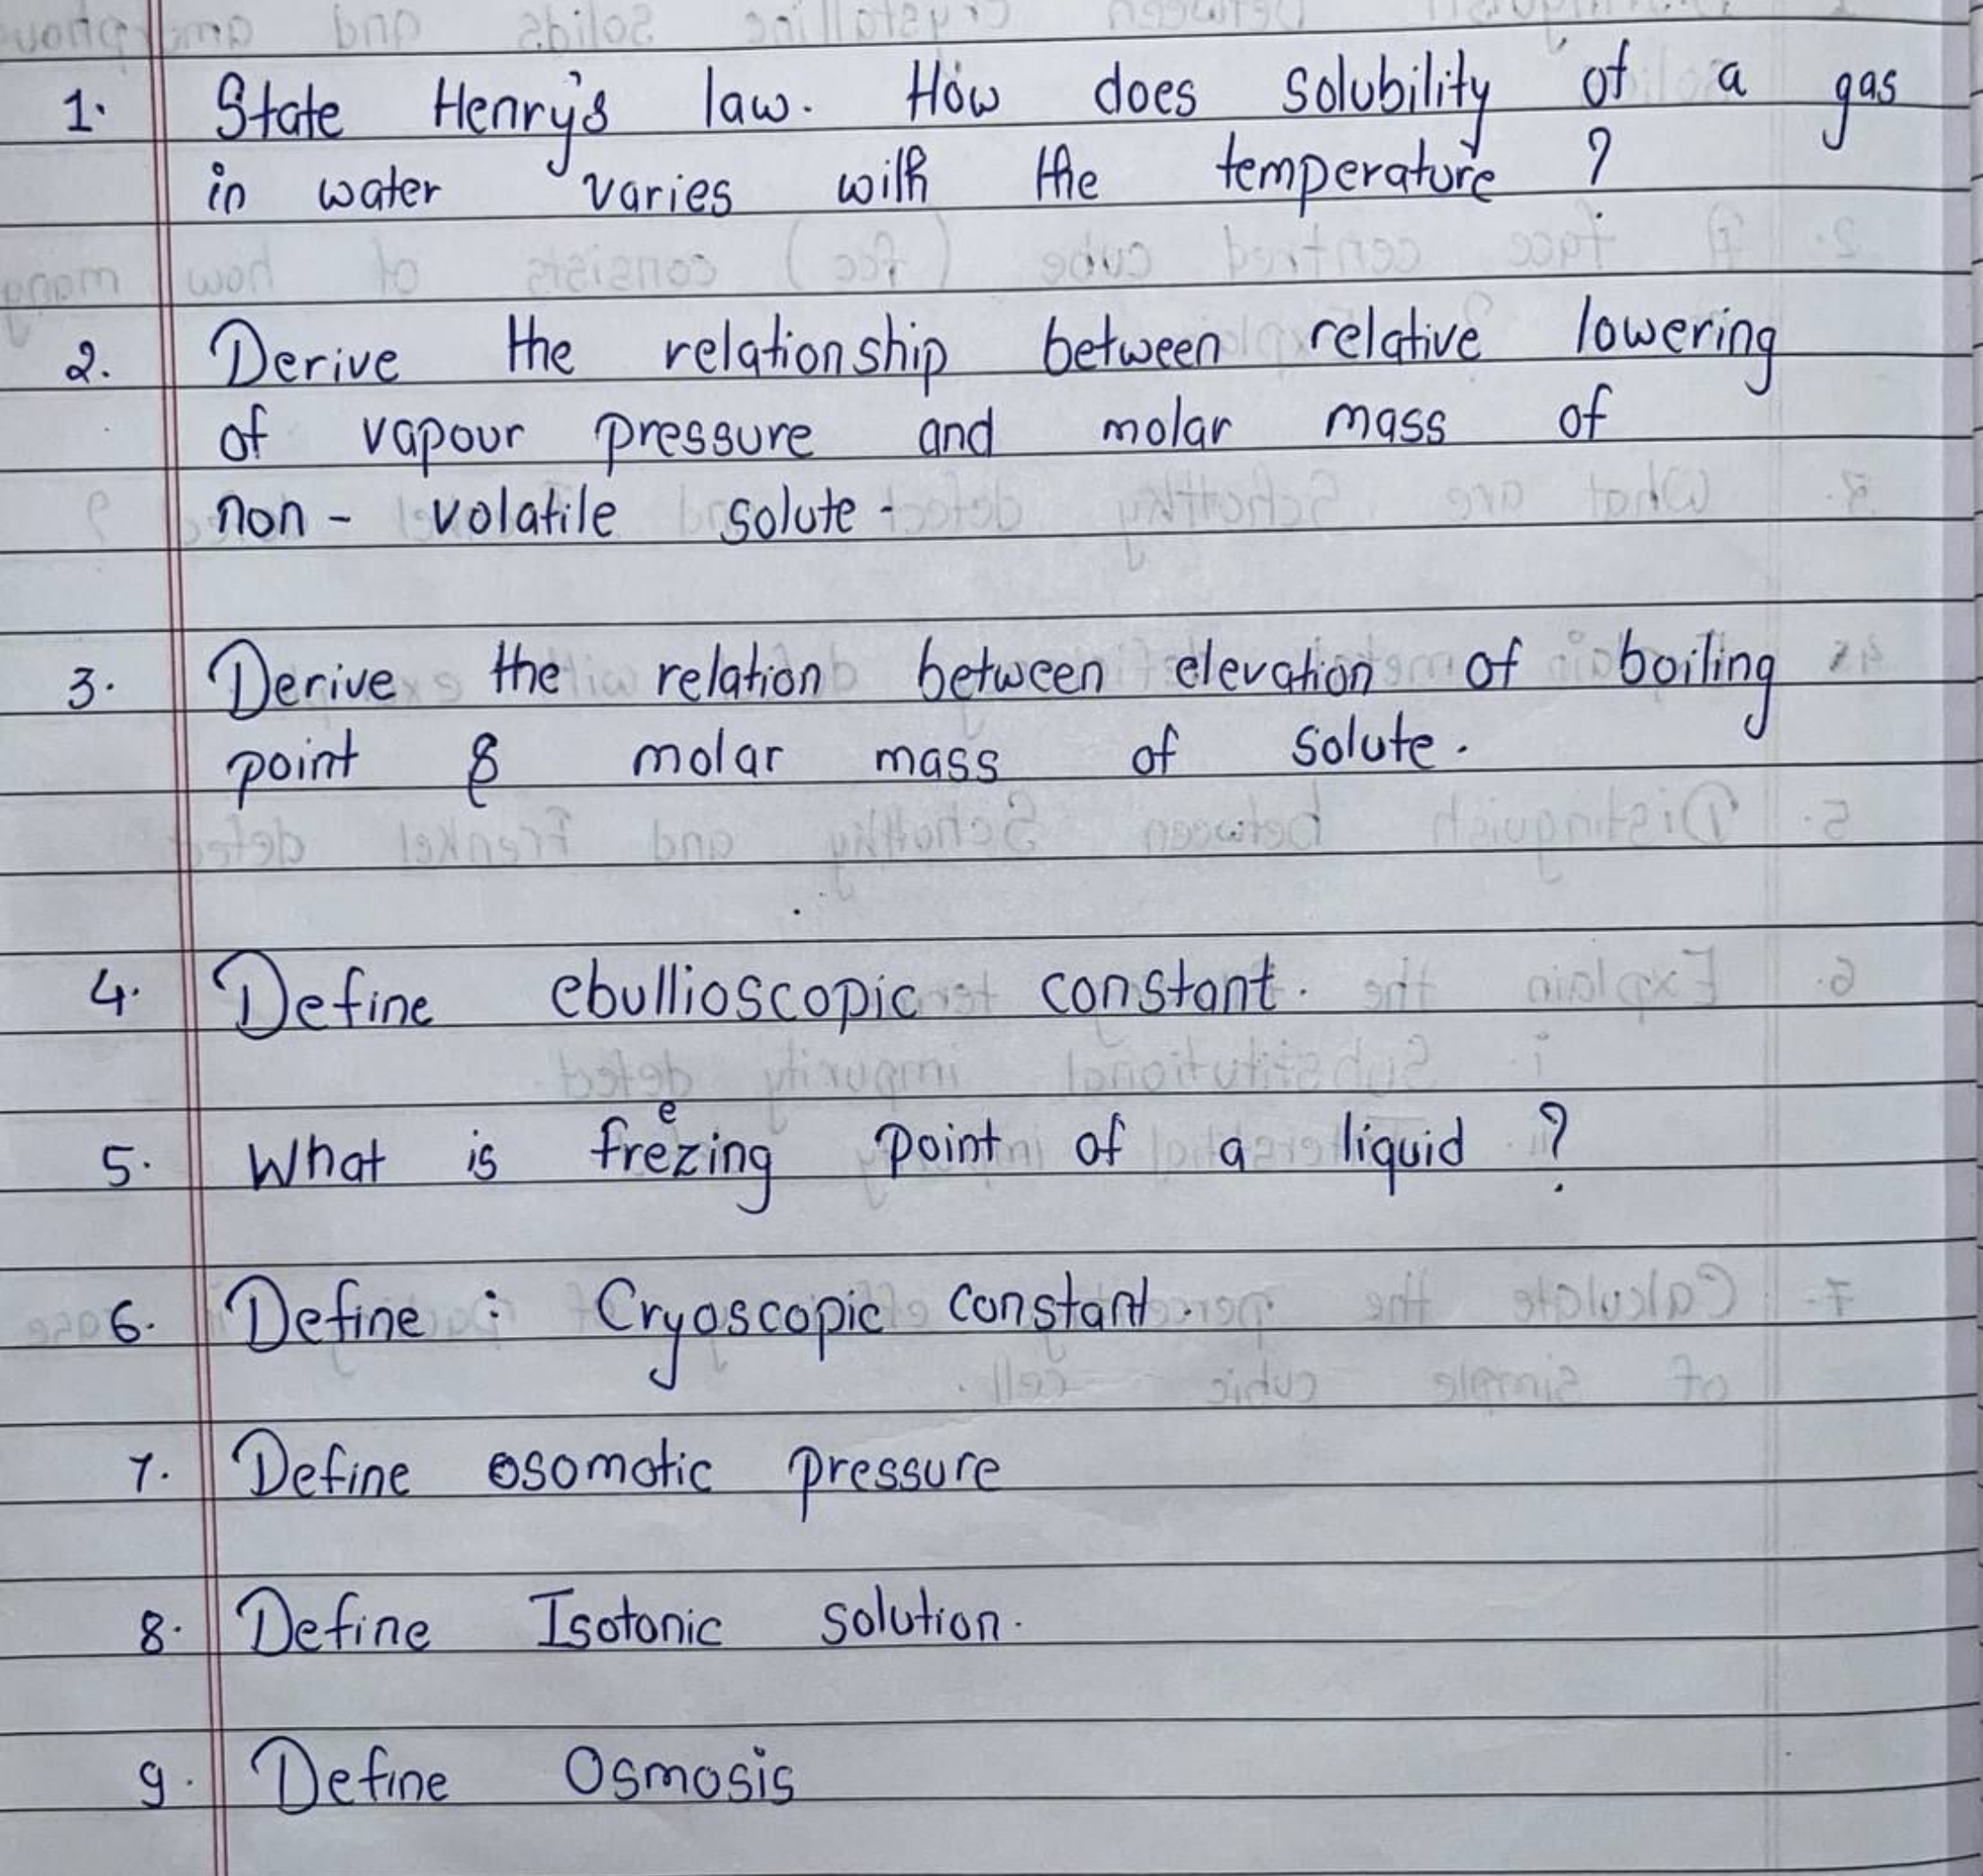 1. State Henry's law. How does solubility of a gas
in water varies with the temperature ?
2. Derive the relationship between relative lowering
of vapour pressure and molar mass of
non - volatile solute.
3. Derive the relation between elevation of boiling
point & molar mass of solute.
4. Define ebullioscopic constant.
5. What is freezing point of a liquid ?
6. Define : Cryoscopic constant.
7. Define osomotic pressure
8. Define Isotonic solution.
9. Define Osmosis